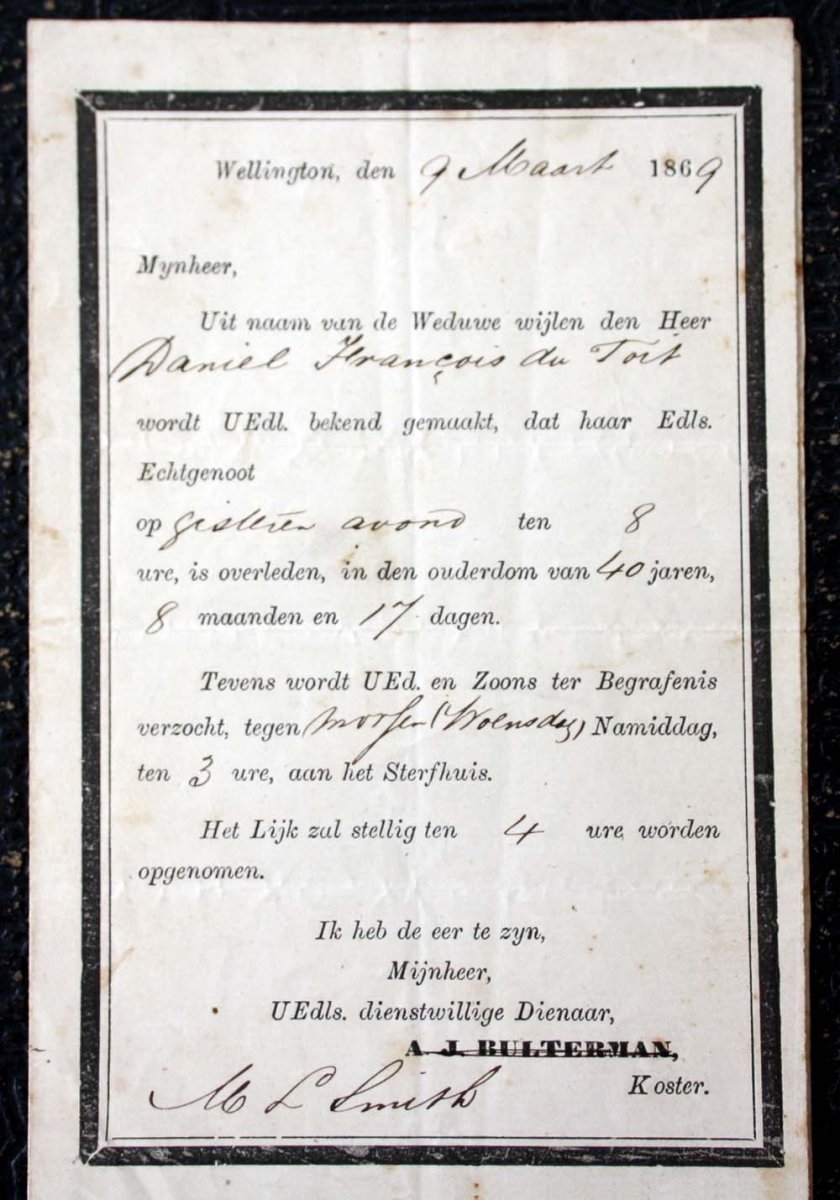 Wellington, den 9 Maart 1869
Mynheer,
Uit naam van de Weduwe wijlen den Heer
Daniel François du Toit
wordt UEdl. bekend gemaakt, dat haar Edls.
Echtgenoot
op gisteren avond ten 8
ure, is overleden, in den ouderdom van 40 jaren,
8 maanden en 17 dagen.
Tevens wordt UEd. en Zoons ter Begrafenis
verzocht, tegen morgen (Woensdag) Namiddag,
ten 3 ure, aan het Sterfhuis.
Het Lijk zal stellig ten 4 ure worden
opgenomen.
Ik heb de eer te zyn,
Mijnheer,
UEdls. dienstwillige Dienaar,
A. J. BULTERMAN,
M L Smith Koster.